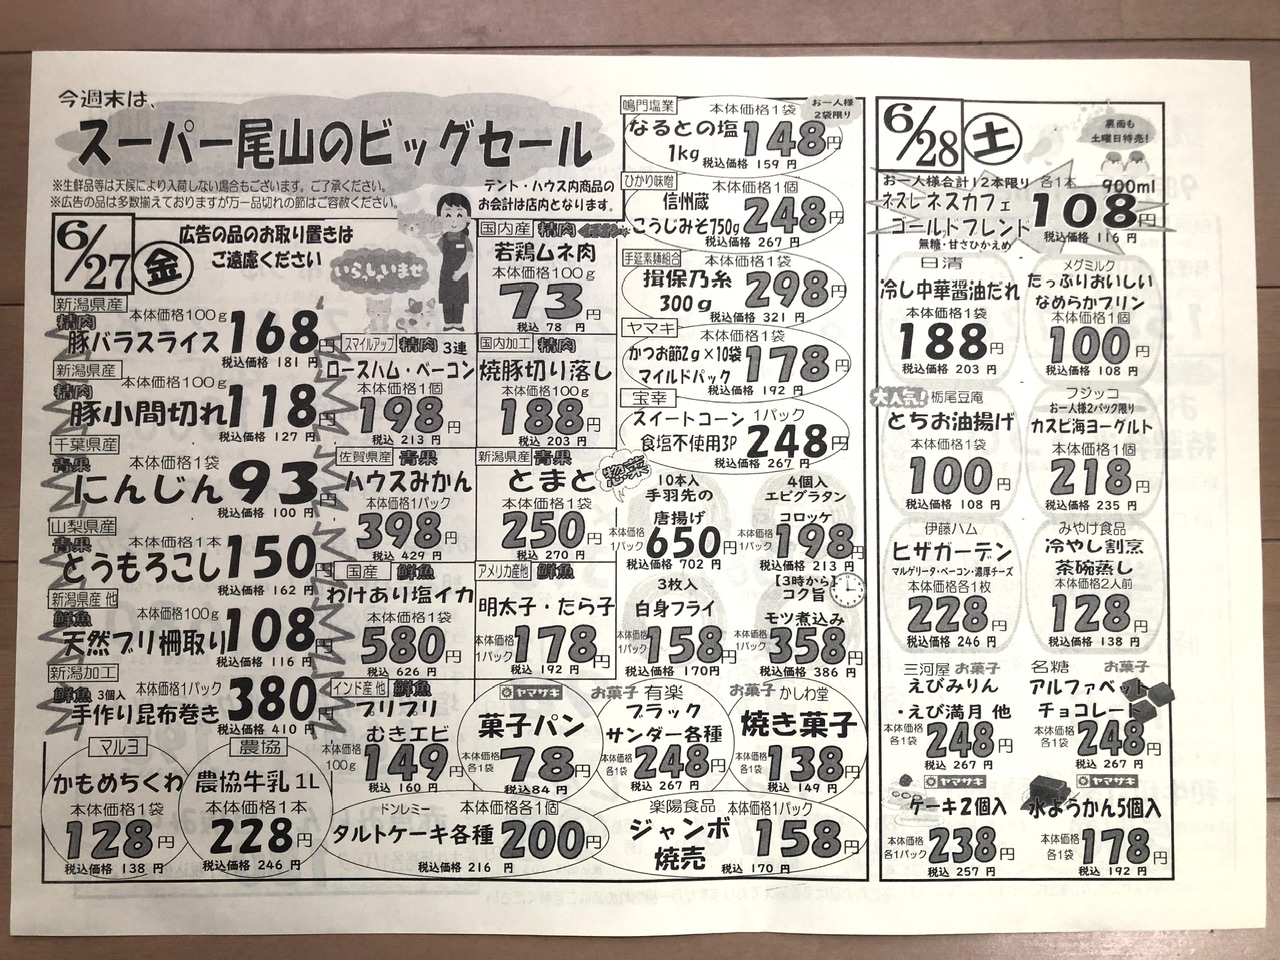 今週末は、
スーパー尾山のビッグセール
※生鮮品等は天候により入荷しない場合もございます。ご了承ください。
※広告の品は多数揃えておりますが万一品切れの節はご容赦ください。
テント・ハウス内商品の
お会計は店内となります。
6/27 金
広告の品のお取り置きは
ご遠慮ください
いらっしいませ
新潟県産
精肉
本体価格100g
豚バラスライス 168円
税込価格 181 円
新潟県産
精肉
本体価格100g
豚小間切れ 118円
税込価格 127 円
千葉県産
青果
本体価格1袋
にんじん 93円
税込価格 100 円
山梨県産
青果
本体価格1本
とうもろこし 150円
税込価格 162 円
新潟県産 他
鮮魚
本体価格100g
天然ブリ柵取り 108円
税込価格 116 円
新潟加工
鮮魚 3個入
本体価格1パック
手作り昆布巻き 380円
税込価格 410 円
国内産 精肉
若鶏ムネ肉
本体価格100g
73円
税込 78 円
スマイルアップ 精肉 3連
ロースハム・ベーコン
本体価格1個
198円
税込 213 円
国内加工 精肉
焼豚切り落し
本体価格100g
188円
税込 203 円
佐賀県産 青果
ハウスみかん
本体価格1パック
398円
税込 429 円
新潟県産 青果
とまと
本体価格1袋
250円
税込 270 円
国産 鮮魚
わけあり塩イカ
本体価格1袋
580円
税込 626 円
アメリカ産他 鮮魚
明太子・たら子
本体価格
1パック 178円
税込 192 円
インド産 他 鮮魚
プリプリ
むきエビ
本体価格
100g 149円
税込 160 円
マルヨ
かもめちくわ
本体価格1袋
128円
税込価格 138 円
農協
農協牛乳1L
本体価格1本
228円
税込価格 246 円
ドンレミー 本体価格各1個
タルトケーキ各種 200円
税込価格 216 円
ヤマザキ
菓子パン
本体価格
各1袋 78円
税込84 円
お菓子 有楽
ブラック
サンダー各種
本体価格
各1袋 248円
税込 267 円
お菓子 かしわ堂
焼き菓子
本体価格
各1袋 138円
税込 149 円
楽陽食品 本体価格1パック
ジャンボ
焼売 158円
税込 170 円
鳴門塩業 本体価格1袋
お一人様
2袋限り
なるとの塩
1kg 148円
税込価格 159 円
ひかり味噌 本体価格1個
信州蔵
こうじみそ750g 248円
税込価格 267 円
手延素麺組合 本体価格1袋
揖保乃糸
300g 298円
税込価格 321 円
ヤマキ 本体価格1袋
かつお節2g×10袋
マイルドパック 178円
税込価格 192 円
宝幸
スイートコーン 1パック
食塩不使用3P 248円
税込価格 267 円
惣菜
10本入
手羽先の
唐揚げ
本体価格
1パック 650円
税込価格 702 円
4個入
エビグラタン
コロッケ
本体価格
1パック 198円
税込 213 円
3枚入
白身フライ
本体価格
1パック 158円
税込価格 170円
【3時から】
コク旨
モツ煮込み
本体価格
1パック 358円
税込価格 386 円
6/28 土
裏面も
土曜日特売!
お一人様合計12本限り 各1本 900ml
ネスレネスカフェ
ゴールドブレンド 108円
無糖・甘さひかえめ
税込価格 116 円
日清
冷し中華醤油だれ
本体価格1袋
188円
税込価格 203 円
メグミルク
たっぷりおいしい
なめらかプリン
本体価格1個
100円
税込価格 108 円
大人気! 栃尾豆庵
とちお油揚げ
本体価格1袋
100円
税込価格 108 円
フジッコ
お一人様2パック限り
カスピ海ヨーグルト
本体価格1個
218円
税込価格 235 円
伊藤ハム
ピザガーデン
マルゲリータ・ベーコン・濃厚チーズ
本体価格各1枚
228円
税込価格 246 円
みやけ食品
冷やし割烹
茶碗蒸し
本体価格2人前
128円
税込価格 138 円
三河屋 お菓子
えびみりん
・えび満月 他
本体価格
各1袋 248円
税込 267 円
名糖 お菓子
アルファベット
チョコレート
本体価格
各1袋 248円
税込 267 円
ヤマザキ
ケーキ2個入
本体価格
各1パック 238円
税込 257 円
ヤマザキ
水ようかん5個入
本体価格
各1袋 178円
税込 192 円